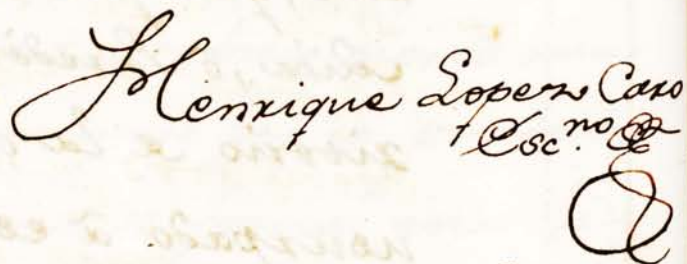 Henrique Lopez Caro
Esc.no